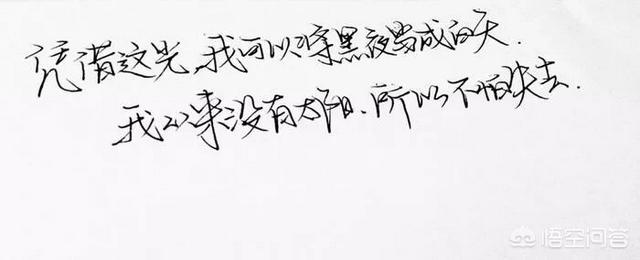 凭借这光,我可以将黑夜当成白天.
我从来没有太阳.所以不怕失去.
悟空问答